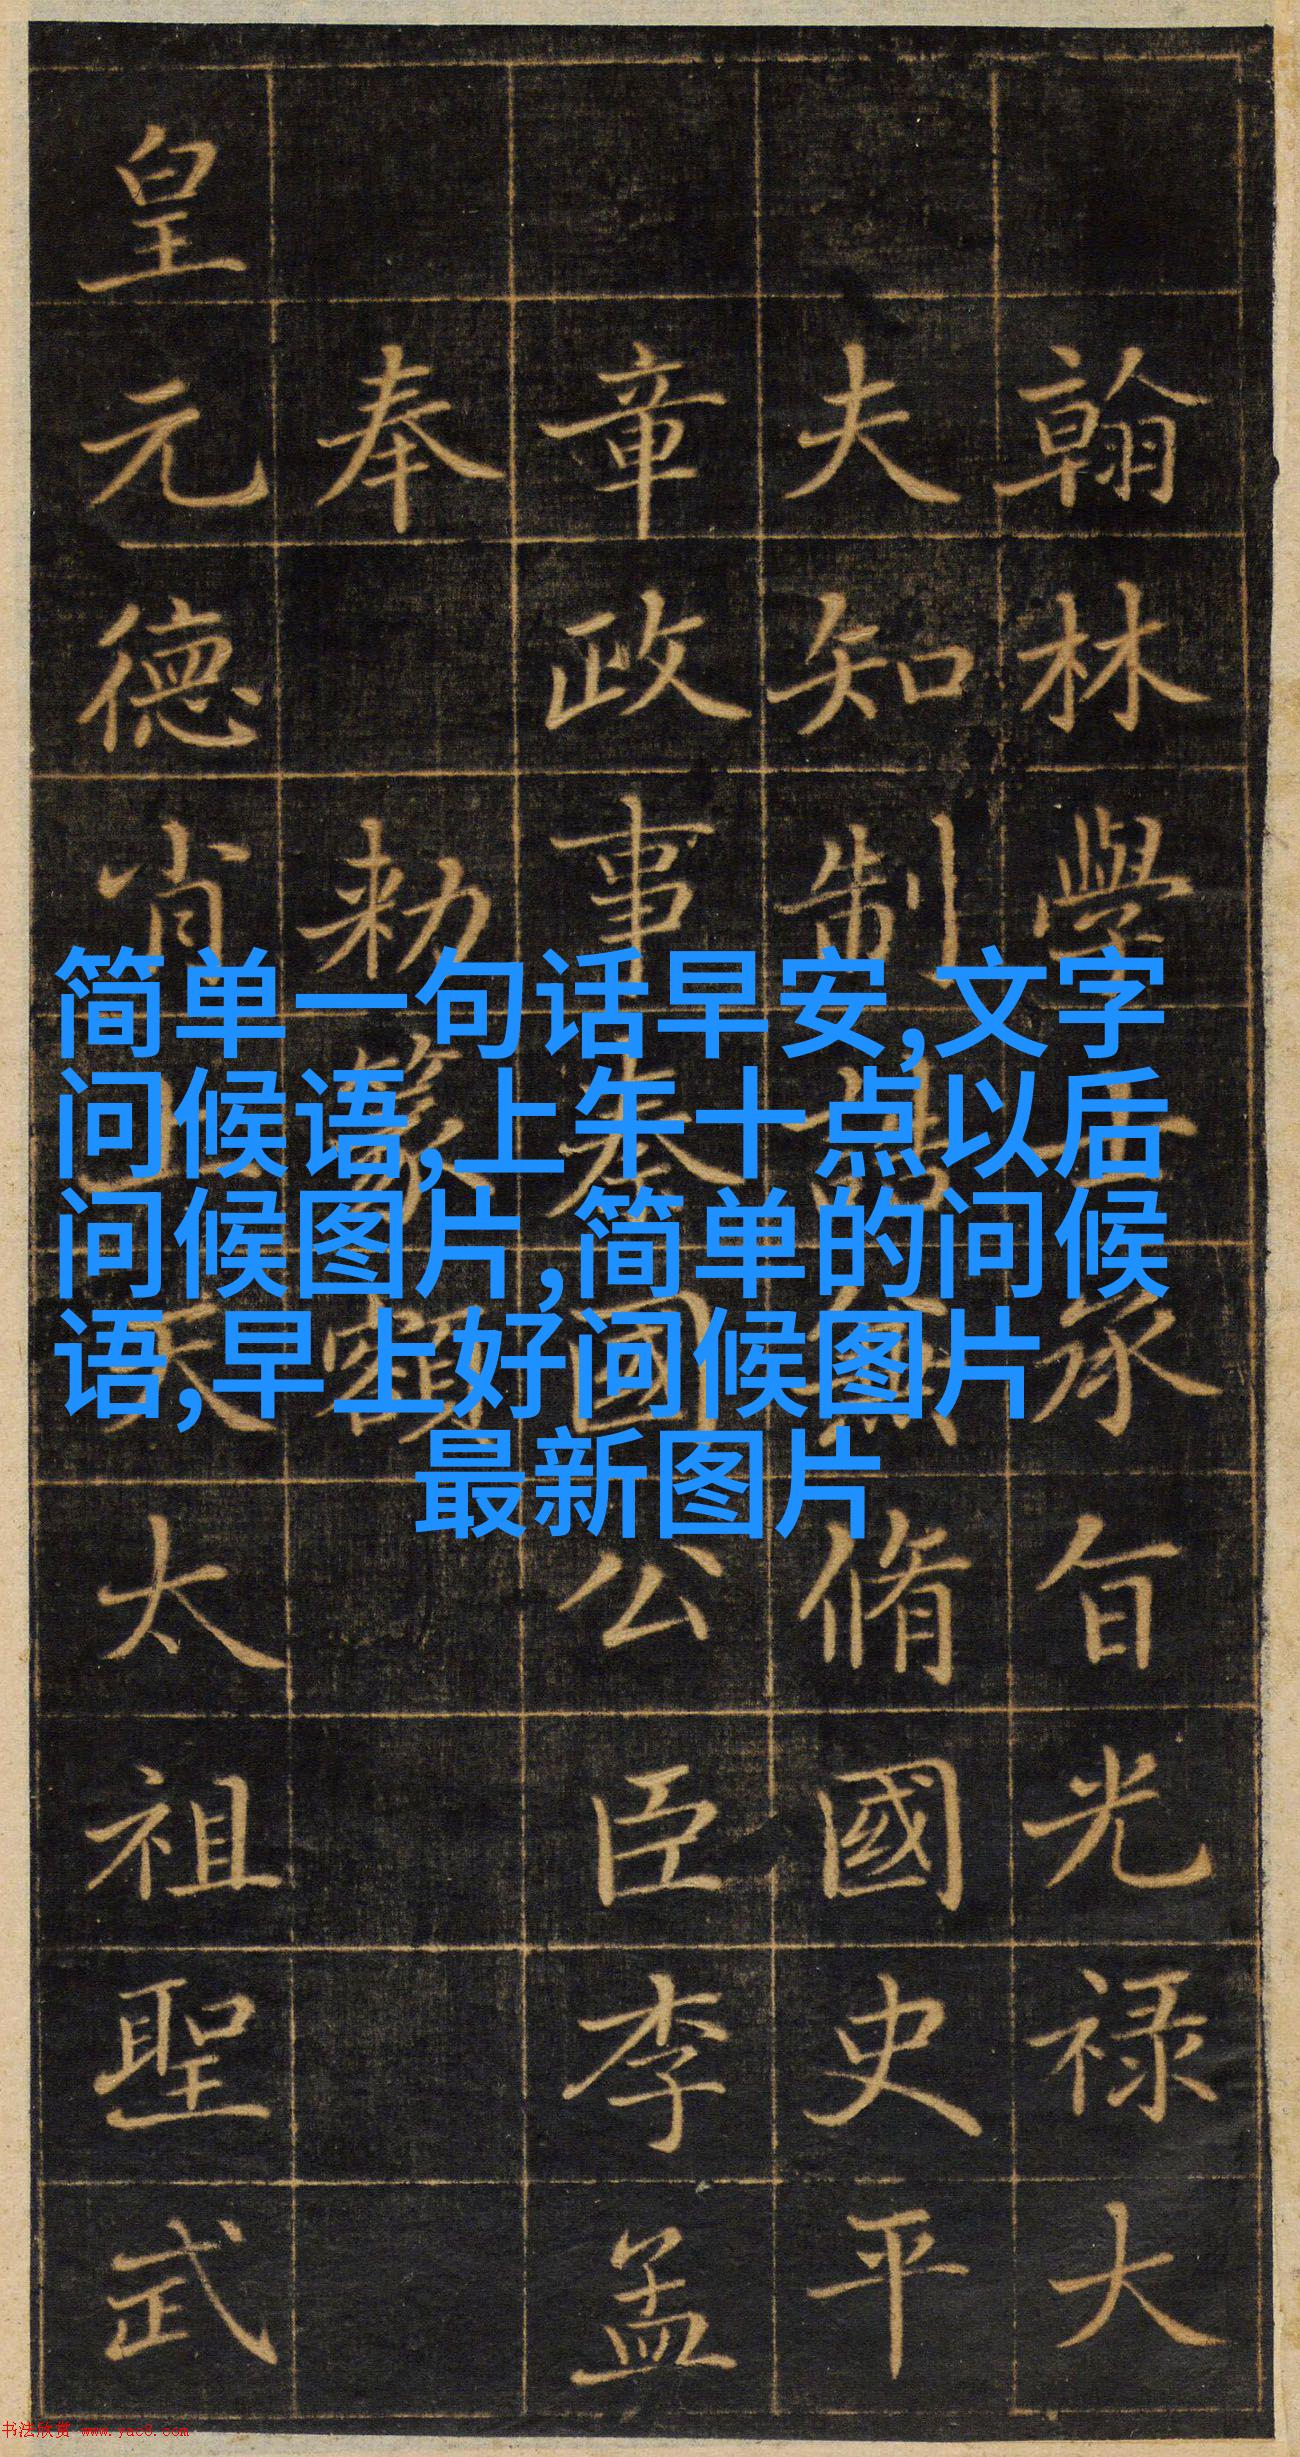 翰林學士承旨光禄大
夫知制誥兼脩國史平
章政事秦國公臣李孟
奉勑篆額
皇元德肖上天太祖聖武
简单一句话早安,文字
问候语,上午十点以后
问候图片,简单的问候
语,早上好问候图片
最新图片
书法欣赏 www.yac8.com